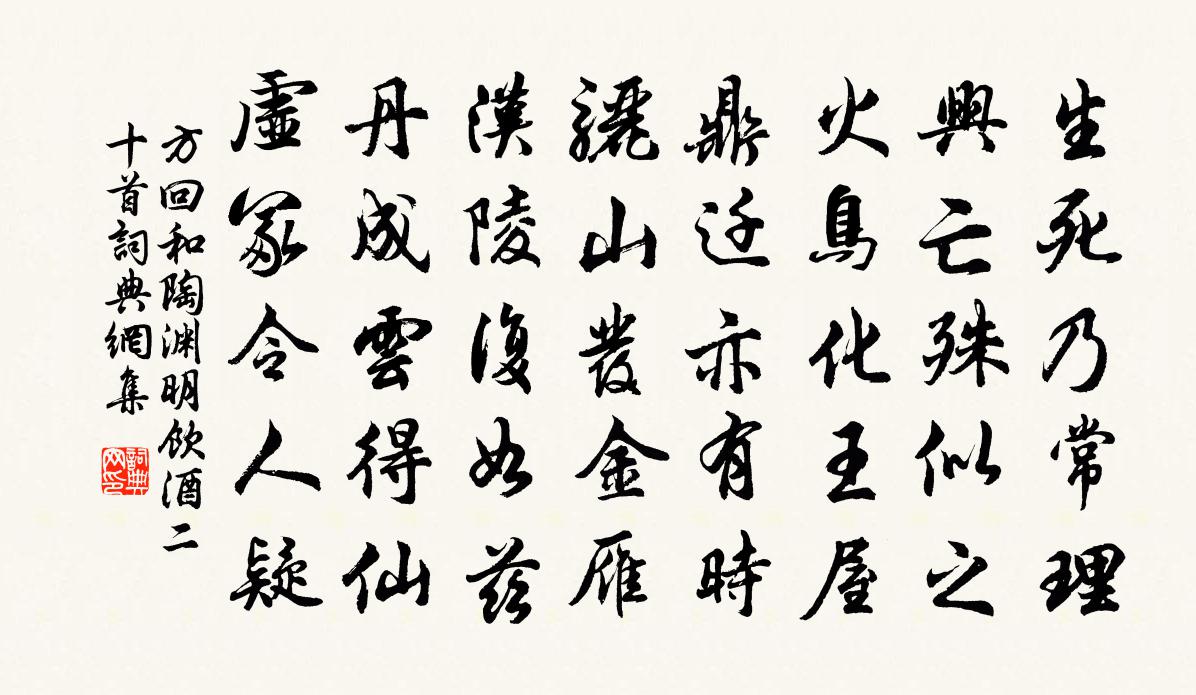 生死乃常理
興亡殊似之
火鳥化王屋
鼎迁亦有時
驪山發金雁
漢陵復如茲
丹成雲得仙
虛冢令人疑
方回和陶淵明飲酒二
十首詞典網集
詞典网印